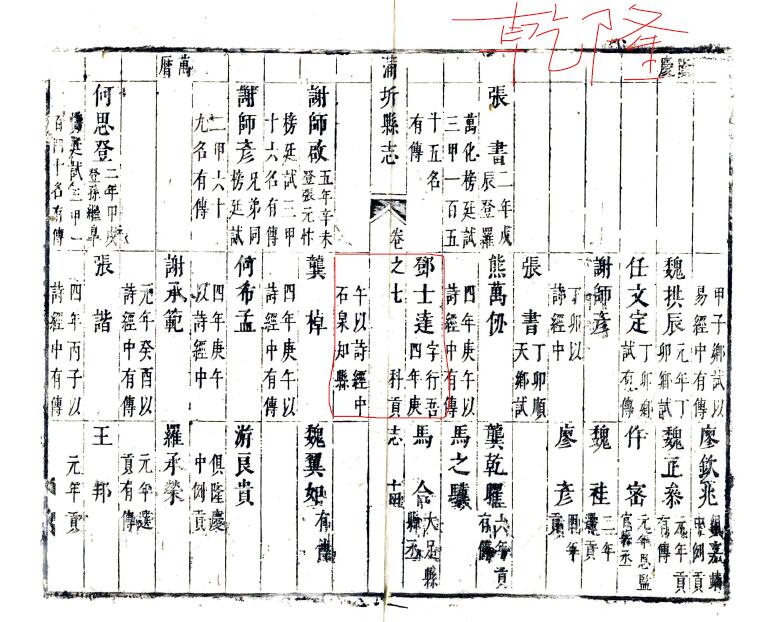 乾隆
隆慶
甲子鄉試
易經中有傳
廖欽兆
魏拱辰 元年丁
卯鄉試
魏正泰 元年貢
有傳
任文定 丁卯鄉
試有傳
仵密
謝師彥 丁卯以
詩經中
魏祍 二年
選貢
張書 丁卯順
天鄉試
廖彥
貢
張書 二年戊
辰登羅
萬化榜廷試
三甲一百五
十五名
有傳
熊萬仞 四年庚午以
詩經中有傳
龔乾曜 六年貢
有傳
馬之驥
鄧士達 字行吾
四年庚
午以詩經中
石泉知縣
馬 大足縣
縣丞
蒲圻縣志
卷之七
科貢志
十四
謝師啟 五年辛未
登張元忭
榜廷試三甲
十六名有傳
龔棹 四年庚午以
詩經中有傳
魏翼如 有傳
謝師彥 兄弟同
榜廷試
二甲六十
九名有傳
何希孟 四年庚午
以詩經中
游良貴 俱隆慶
中例貢
萬曆
謝承範 元年癸酉以
詩經中有傳
羅承榮 元年選
貢有傳
何思登 二年甲戌
登孫繼皋
榜廷試三甲一
百四十名有傳
張諧 四年丙子以
詩經中有傳
王邦 元年貢